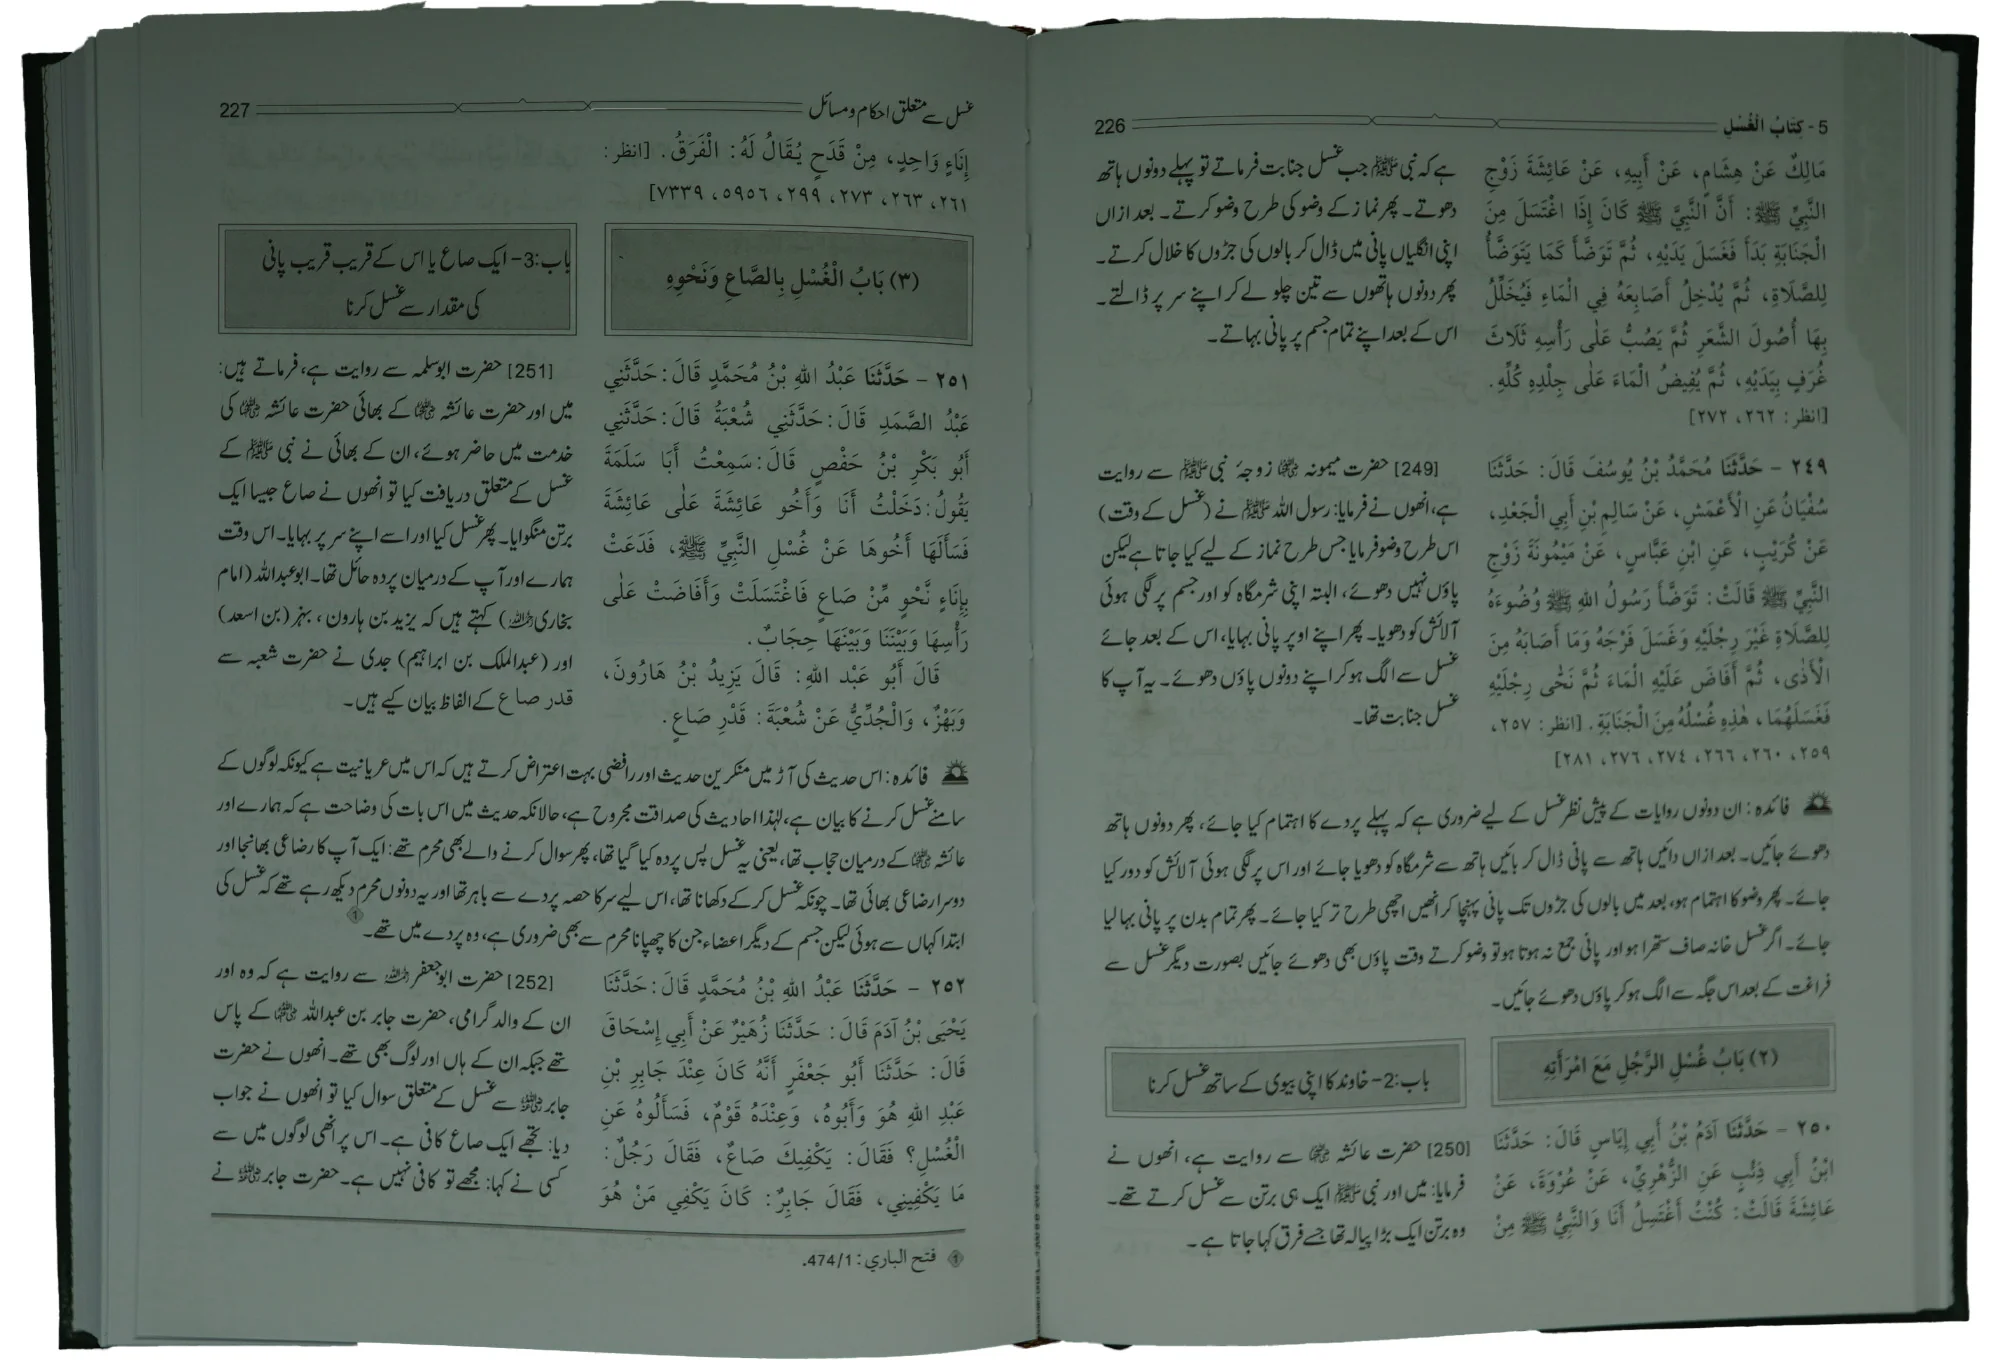 5 - كِتَابُ الْغُسْلِ
226
مَالِكٌ عَنْ هِشَامٍ، عَنْ أَبِيهِ، عَنْ عَائِشَةَ زَوْجِ
النَّبِيِّ ﷺ: أَنَّ النَّبِيَّ ﷺ كَانَ إِذَا اغْتَسَلَ مِنَ
الْجَنَابَةِ بَدَأَ فَغَسَلَ يَدَيْهِ، ثُمَّ تَوَضَّأَ كَمَا يَتَوَضَّأُ
لِلصَّلَاةِ، ثُمَّ يُدْخِلُ أَصَابِعَهُ فِي الْمَاءِ فَيُخَلِّلُ
بِهَا أُصُولَ الشَّعَرِ ثُمَّ يَصُبُّ عَلٰى رَأْسِهِ ثَلَاثَ
غُرَفٍ بِيَدَيْهِ، ثُمَّ يُفِيضُ الْمَاءَ عَلٰى جِلْدِهِ كُلِّهِ.
[انظر: ٢٦٢، ٢٧٢]
ہے کہ نبی ﷺ جب غسل جنابت فرماتے تو پہلے دونوں ہاتھ
دھوتے۔ پھر نماز کے وضو کی طرح وضو کرتے۔ بعد ازاں
اپنی انگلیاں پانی میں ڈال کر بالوں کی جڑوں کا خلال کرتے۔
پھر دونوں ہاتھوں سے تین چلو لے کر اپنے سر پر ڈالتے۔
اس کے بعد اپنے تمام جسم پر پانی بہاتے۔
٢٤٩ - حَدَّثَنَا مُحَمَّدُ بْنُ يُوسُفَ قَالَ: حَدَّثَنَا
سُفْيَانُ عَنِ الْأَعْمَشِ، عَنْ سَالِمِ بْنِ أَبِي الْجَعْدِ،
عَنْ كُرَيْبٍ، عَنِ ابْنِ عَبَّاسٍ، عَنْ مَيْمُونَةَ زَوْجِ
النَّبِيِّ ﷺ قَالَتْ: تَوَضَّأَ رَسُولُ اللهِ ﷺ وُضُوءَهُ
لِلصَّلَاةِ غَيْرَ رِجْلَيْهِ وَغَسَلَ فَرْجَهُ وَمَا أَصَابَهُ مِنَ
الْأَذٰى، ثُمَّ أَفَاضَ عَلَيْهِ الْمَاءَ ثُمَّ نَحّٰى رِجْلَيْهِ
فَغَسَلَهُمَا، هٰذِهِ غُسْلُهُ مِنَ الْجَنَابَةِ. [انظر: ٢٥٧،
٢٥٩، ٢٦٠، ٢٦٦، ٢٧٤، ٢٧٦، ٢٨١]
[249] حضرت میمونہ ؓ زوجۂ نبی ﷺ سے روایت
ہے، انھوں نے فرمایا: رسول اللہ ﷺ نے (غسل کے وقت)
اس طرح وضو فرمایا جس طرح نماز کے لیے کیا جاتا ہے لیکن
پاؤں نہیں دھوئے، البتہ اپنی شرمگاہ کو اور جسم پر لگی ہوئی
آلائش کو دھویا۔ پھر اپنے اوپر پانی بہایا، اس کے بعد جائے
غسل سے الگ ہو کر اپنے دونوں پاؤں دھوئے۔ یہ آپ کا
غسل جنابت تھا۔
فائدہ: ان دونوں روایات کے پیش نظر غسل کے لیے ضروری ہے کہ پہلے پردے کا اہتمام کیا جائے، پھر دونوں ہاتھ
دھوئے جائیں۔ بعد ازاں دائیں ہاتھ سے پانی ڈال کر بائیں ہاتھ سے شرمگاہ کو دھویا جائے اور اس پر لگی ہوئی آلائش کو دور کیا
جائے۔ پھر وضو کا اہتمام ہو، بعد میں بالوں کی جڑوں تک پانی پہنچا کر انھیں اچھی طرح تر کیا جائے۔ پھر تمام بدن پر پانی بہا لیا
جائے۔ اگر غسل خانہ صاف ستھرا ہو اور پانی جمع نہ ہوتا ہو تو وضو کرتے وقت پاؤں بھی دھوئے جائیں بصورت دیگر غسل سے
فراغت کے بعد اس جگہ سے الگ ہو کر پاؤں دھوئے جائیں۔
(٢) بَابُ غُسْلِ الرَّجُلِ مَعَ امْرَأَتِهِ
باب: 2- خاوند کا اپنی بیوی کے ساتھ غسل کرنا
٢٥٠ - حَدَّثَنَا آدَمُ بْنُ أَبِي إِيَاسٍ قَالَ: حَدَّثَنَا
ابْنُ أَبِي ذِئْبٍ عَنِ الزُّهْرِيِّ، عَنْ عُرْوَةَ، عَنْ
عَائِشَةَ قَالَتْ: كُنْتُ أَغْتَسِلُ أَنَا وَالنَّبِيُّ ﷺ مِنْ
[250] حضرت عائشہ ؓ سے روایت ہے، انھوں نے
فرمایا: میں اور نبی ﷺ ایک ہی برتن سے غسل کرتے تھے۔
وہ برتن ایک بڑا پیالہ تھا جسے فرق کہا جاتا ہے۔
غسل سے متعلق احکام و مسائل
227
إِنَاءٍ وَاحِدٍ، مِنْ قَدَحٍ يُقَالُ لَهُ: الْفَرَقُ. [انظر:
٢٦١، ٢٦٣، ٢٧٣، ٢٩٩، ٥٩٥٦، ٧٣٣٩]
(٣) بَابُ الْغُسْلِ بِالصَّاعِ وَنَحْوِهِ
باب: 3- ایک صاع یا اس کے قریب قریب پانی
کی مقدار سے غسل کرنا
٢٥١ - حَدَّثَنَا عَبْدُ اللهِ بْنُ مُحَمَّدٍ قَالَ: حَدَّثَنِي
عَبْدُ الصَّمَدِ قَالَ: حَدَّثَنِي شُعْبَةُ قَالَ: حَدَّثَنِي
أَبُو بَكْرِ بْنُ حَفْصٍ قَالَ: سَمِعْتُ أَبَا سَلَمَةَ
يَقُولُ: دَخَلْتُ أَنَا وَأَخُو عَائِشَةَ عَلٰى عَائِشَةَ
فَسَأَلَهَا أَخُوهَا عَنْ غُسْلِ النَّبِيِّ ﷺ، فَدَعَتْ
بِإِنَاءٍ نَّحْوٍ مِّنْ صَاعٍ فَاغْتَسَلَتْ وَأَفَاضَتْ عَلٰى
رَأْسِهَا وَبَيْنَنَا وَبَيْنَهَا حِجَابٌ.
قَالَ أَبُو عَبْدِ اللهِ: قَالَ يَزِيدُ بْنُ هَارُونَ،
وَبَهْزٌ، وَالْجُدِّيُّ عَنْ شُعْبَةَ: قَدْرِ صَاعٍ.
[251] حضرت ابوسلمہ سے روایت ہے، فرماتے ہیں:
میں اور حضرت عائشہ ؓ کے بھائی حضرت عائشہ ؓ کی
خدمت میں حاضر ہوئے، ان کے بھائی نے نبی ﷺ کے
غسل کے متعلق دریافت کیا تو انھوں نے صاع جیسا ایک
برتن منگوایا۔ پھر غسل کیا اور اسے اپنے سر پر بہایا۔ اس وقت
ہمارے اور آپ کے درمیان پردہ حائل تھا۔ ابوعبداللہ (امام
بخاری ؒ) کہتے ہیں کہ یزید بن ہارون، بہز (بن اسعد)
اور (عبدالملک بن ابراہیم) جدی نے حضرت شعبہ سے
قدر صاع کے الفاظ بیان کیے ہیں۔
فائدہ: اس حدیث کی آڑ میں منکرین حدیث اور رافضی بہت اعتراض کرتے ہیں کہ اس میں عریانیت ہے کیونکہ لوگوں کے
سامنے غسل کرنے کا بیان ہے، لہٰذا احادیث کی صداقت مجروح ہے، حالانکہ حدیث میں اس بات کی وضاحت ہے کہ ہمارے اور
عائشہ ؓ کے درمیان حجاب تھا، یعنی یہ غسل پس پردہ کیا گیا تھا، پھر سوال کرنے والے بھی محرم تھے: ایک آپ کا رضاعی بھانجا اور
دوسرا رضاعی بھائی تھا۔ چونکہ غسل کر کے دکھانا تھا، اس لیے سر کا حصہ پردے سے باہر تھا اور یہ دونوں محرم دیکھ رہے تھے کہ غسل کی
ابتدا کہاں سے ہوئی لیکن جسم کے دیگر اعضاء جن کا چھپانا محرم سے بھی ضروری ہے، وہ پردے میں تھے۔①
٢٥٢ - حَدَّثَنَا عَبْدُ اللهِ بْنُ مُحَمَّدٍ قَالَ: حَدَّثَنَا
يَحْيَى بْنُ آدَمَ قَالَ: حَدَّثَنَا زُهَيْرٌ عَنْ أَبِي إِسْحَاقَ
قَالَ: حَدَّثَنَا أَبُو جَعْفَرٍ أَنَّهُ كَانَ عِنْدَ جَابِرِ بْنِ
عَبْدِ اللهِ هُوَ وَأَبُوهُ، وَعِنْدَهُ قَوْمٌ، فَسَأَلُوهُ عَنِ
الْغُسْلِ؟ فَقَالَ: يَكْفِيكَ صَاعٌ، فَقَالَ رَجُلٌ:
مَا يَكْفِينِي، فَقَالَ جَابِرٌ: كَانَ يَكْفِي مَنْ هُوَ
[252] حضرت ابوجعفر ؒ سے روایت ہے کہ وہ اور
ان کے والد گرامی، حضرت جابر بن عبداللہ ؓ کے پاس
تھے جبکہ ان کے ہاں اور لوگ بھی تھے۔ انھوں نے حضرت
جابر ؓ سے غسل کے متعلق سوال کیا تو انھوں نے جواب
دیا: تجھے ایک صاع کافی ہے۔ اس پر انھی لوگوں میں سے
کسی نے کہا: مجھے تو کافی نہیں ہے۔ حضرت جابر ؓ نے
① فتح الباري: 474/1.